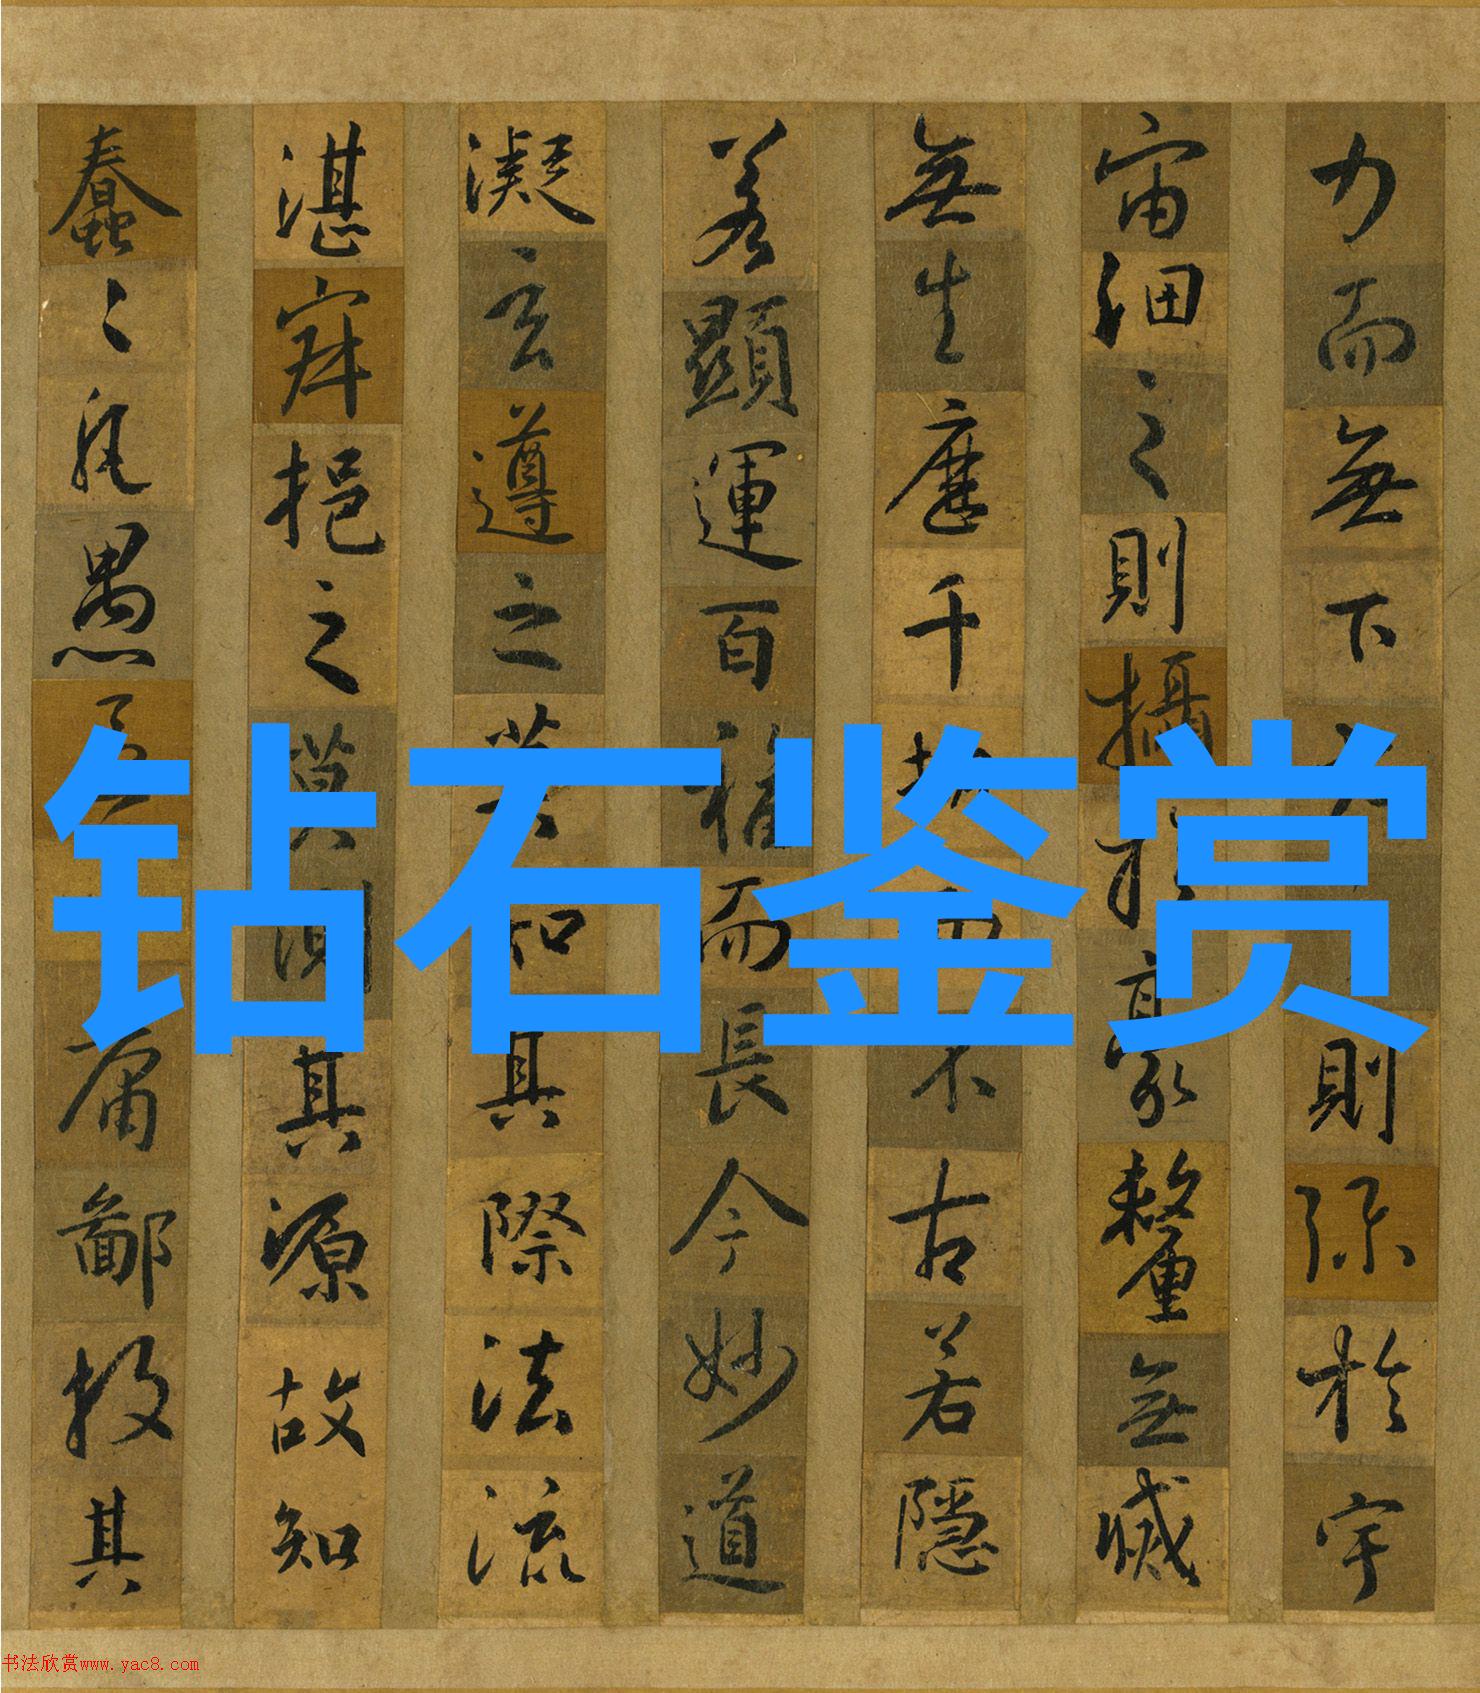 力而無下則弥於宇
宙細之則攝於豪釐無滅
無生歷千劫不古若隱
若顯運百福而長今妙道
凝玄遵之莫知其際法流
湛寂挹之莫測其源故知
蠢々凡愚庸鄙投其
钻石鉴赏
书法欣赏www.yac8.com